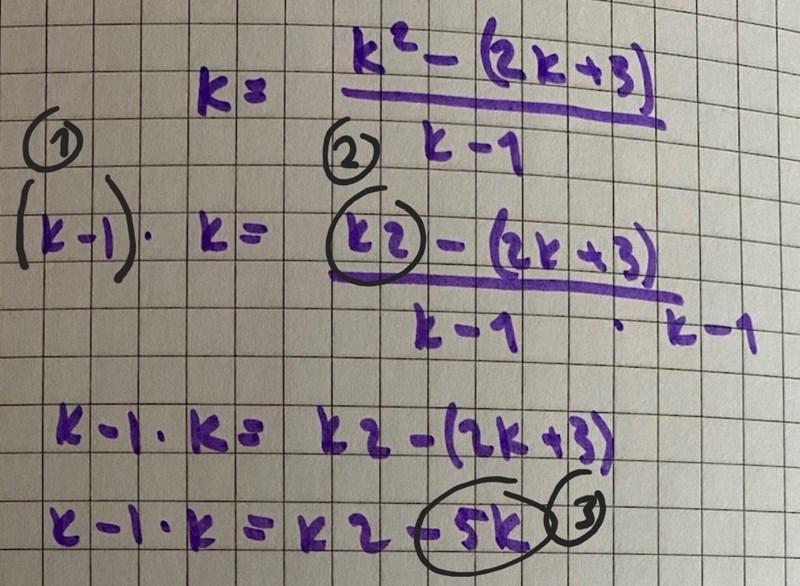 k = k² - (2k+3)
k-1
① ②
(k-1) · k = k2 - (2k+3)
k-1 · k-1
k-1 · k = k2 - (2k+3)
k-1 · k = k2 - 5k ③